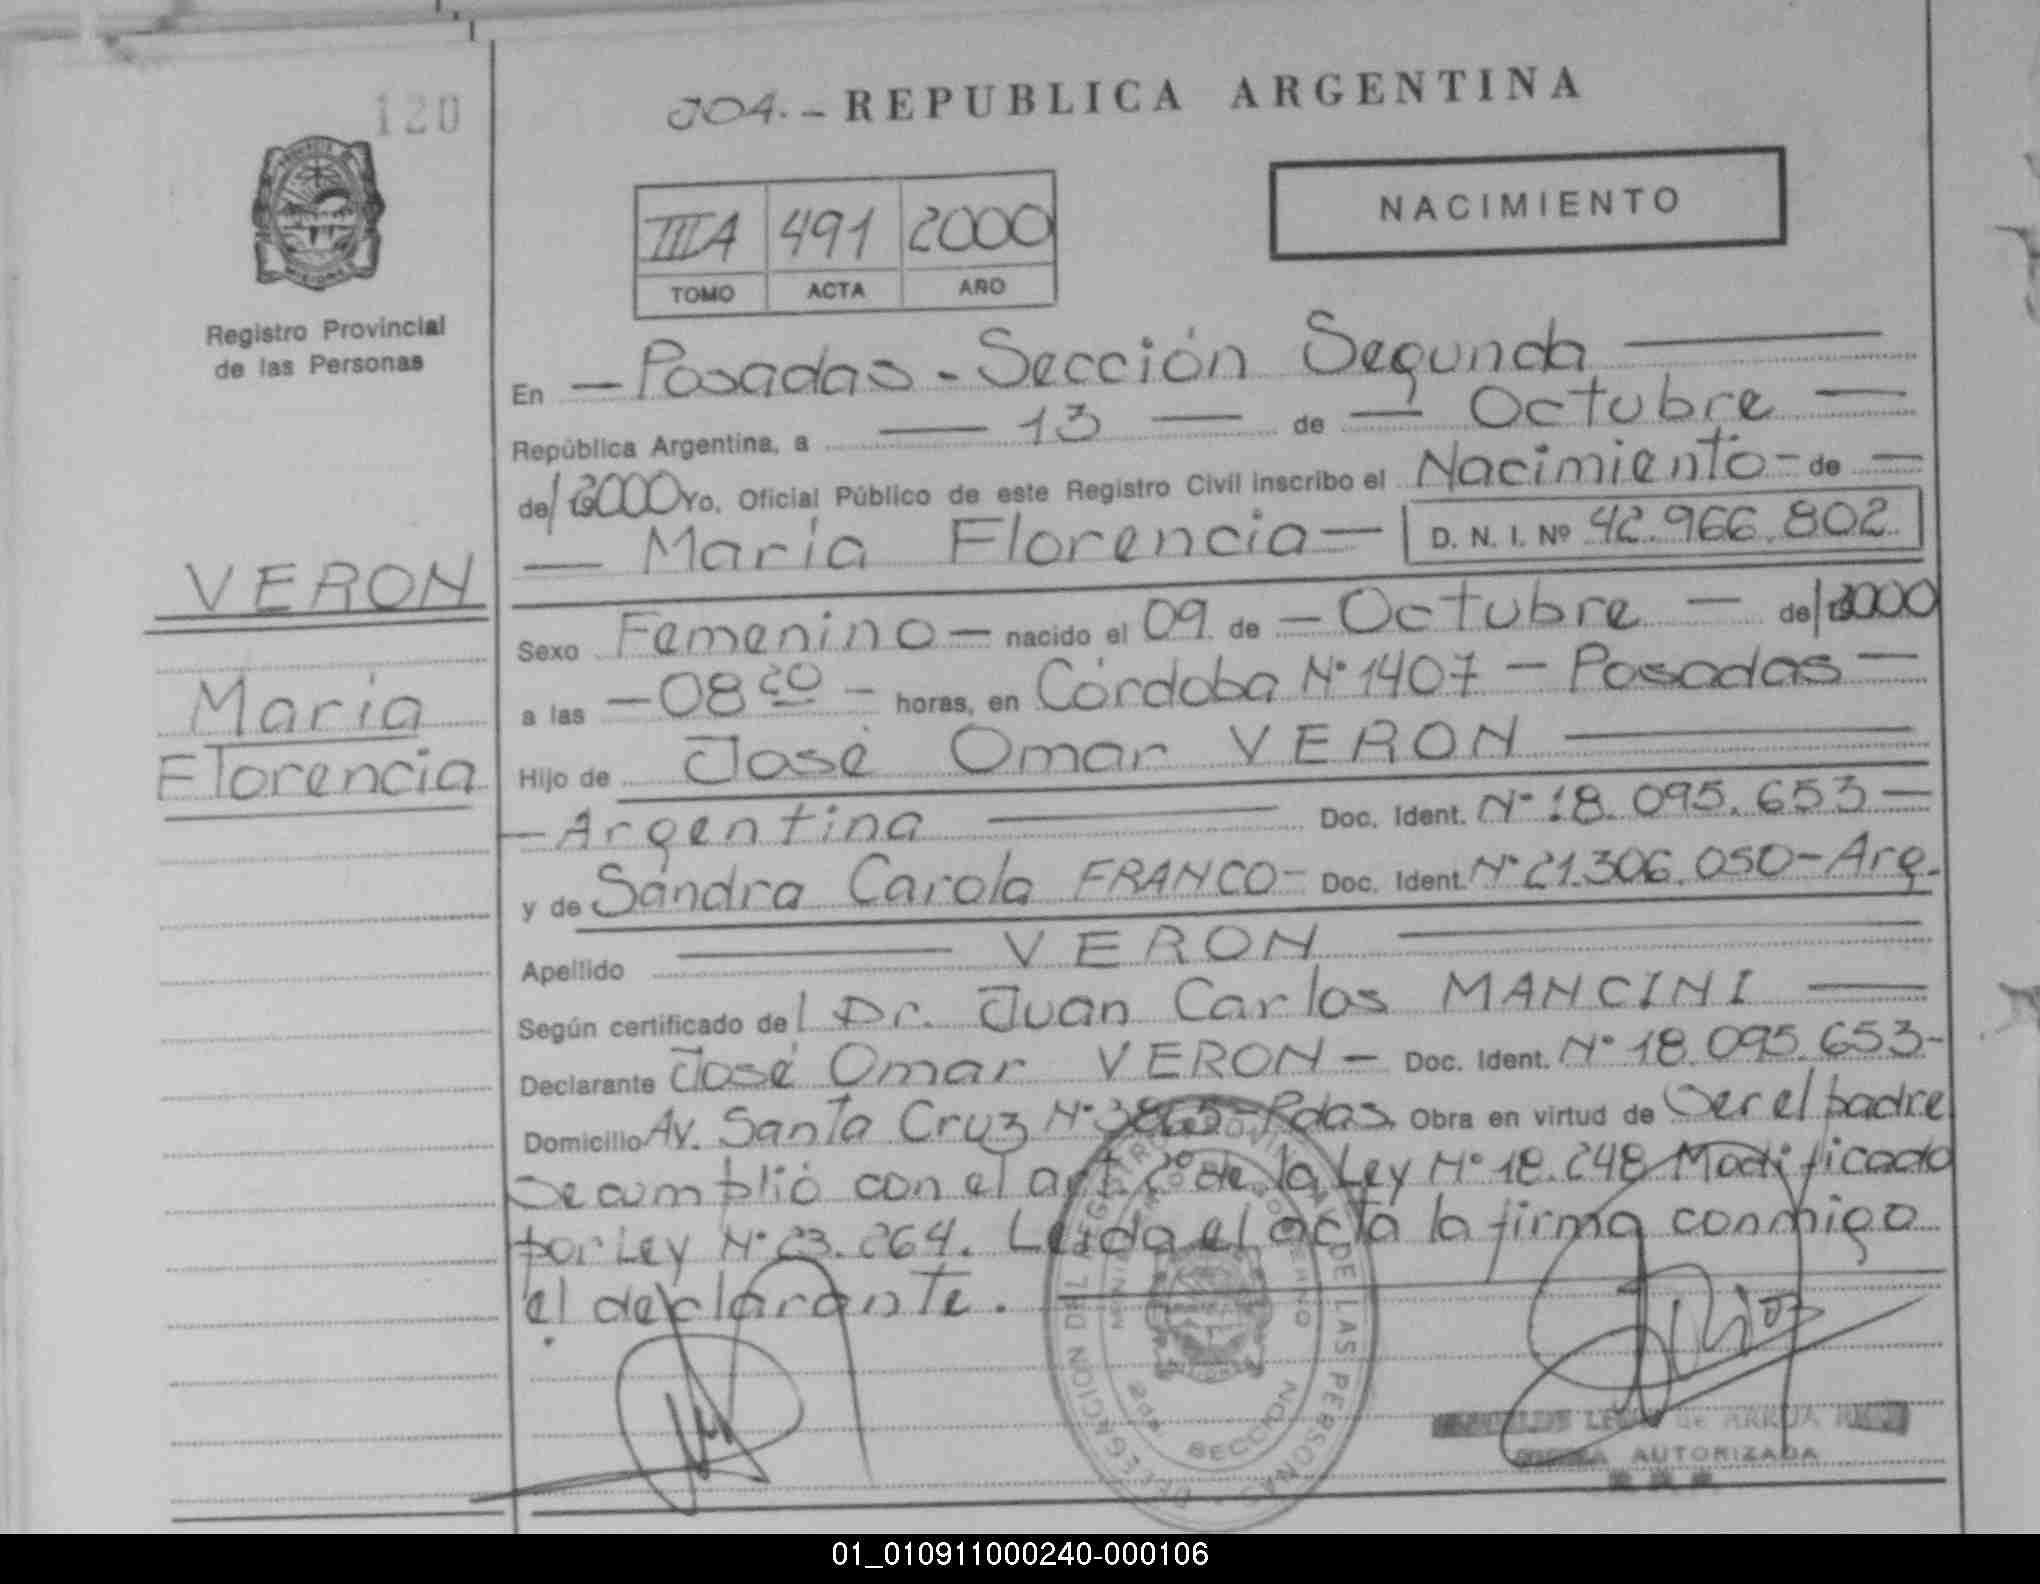 120
304.- REPUBLICA ARGENTINA
NACIMIENTO
IIIA 491 2000
TOMO ACTA AÑO
Registro Provincial
de las Personas
VERON
María
Florencia
En - Posadas - Sección Segunda
República Argentina, a 13 de Octubre
de 2000 Yo, Oficial Público de este Registro Civil inscribo el Nacimiento - de
María Florencia - D. N. I. Nº 42.966.802.
Sexo Femenino - nacido el 09 de - Octubre - de 2000
a las - 08 20 - horas, en Córdoba Nº 1407 - Posadas -
Hijo de José Omar VERON
- Argentina Doc. Ident. Nº 18.095.653 -
y de Sandra Carola FRANCO - Doc. Ident. Nº 21.306.050 - Arg.
Apellido VERON
Según certificado del Dr. Juan Carlos MANCINI
Declarante José Omar VERON - Doc. Ident. Nº 18.095.653 -
Domicilio Av. Santa Cruz Nº Pdas. Obra en virtud de Ser el padre
Se cumplió con el art. 2º de la Ley Nº 18.248 Modificado
por Ley Nº 23.264. Leída el acta la firma conmigo
el declarante.
DELEGACION DEL REGISTRO PROVINCIAL DE LAS PERSONAS
2da SECCION
AUTORIZADA
01_010911000240-000106